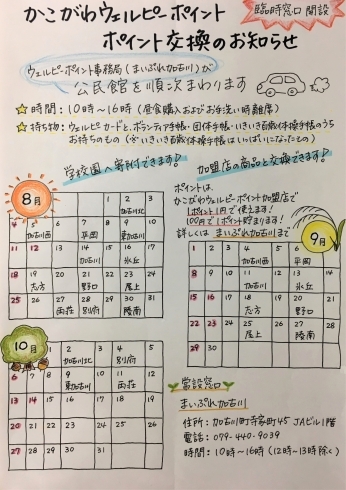 かこがわウェルピーポイント
ポイント交換のお知らせ
臨時窓口 開設
ウェルピーポイント事務局(まいぷれ加古川)が
公民館を順次まわります
時間:10時〜16時(昼食購入およびお手洗い時離席)
持ち物:ウェルピーカードと、ボランティア手帳・団体手帳・いきいき百歳体操手帳のうち
お持ちのもの(※いきいき百歳体操手帳はいっぱいになったもの)
学校園へ寄附できます♪
加盟店の商品と交換できます♪
8月
1 2 3
加古川北
4 5 6 7 8 9 10
加古川西 平岡 東加古川
11 12 13 14 15 16 17
加古川 氷丘
18 19 20 21 22 23 24
志方 野口 尾上
25 26 27 28 29 30 31
両荘 別府 陵南
ポイントは、
かこがわウェルピーポイント加盟店で
1ポイント1円で使えます!
100円で1ポイント貯まります!
詳しくは まいぷれ加古川まで
9月
1 2 3 4 5 6 7
加古川西 平岡
8 9 10 11 12 13 14
加古川 氷丘
15 16 17 18 19 20 21
志方 陵南
22 23 24 25 26 27 28
尾上
29 30
10月
1 2 3 4 5
加古川北 別府
6 7 8 9 10 11 12
東加古川 両荘
13 14 15 16 17 18 19
20 21 22 23 24 25 26
27 28 29 30 31
常設窓口
まいぷれ加古川
住所:加古川町寺家町45 JAビル1階
電話:079-440-9039
時間:10時〜16時(12時〜13時除く)